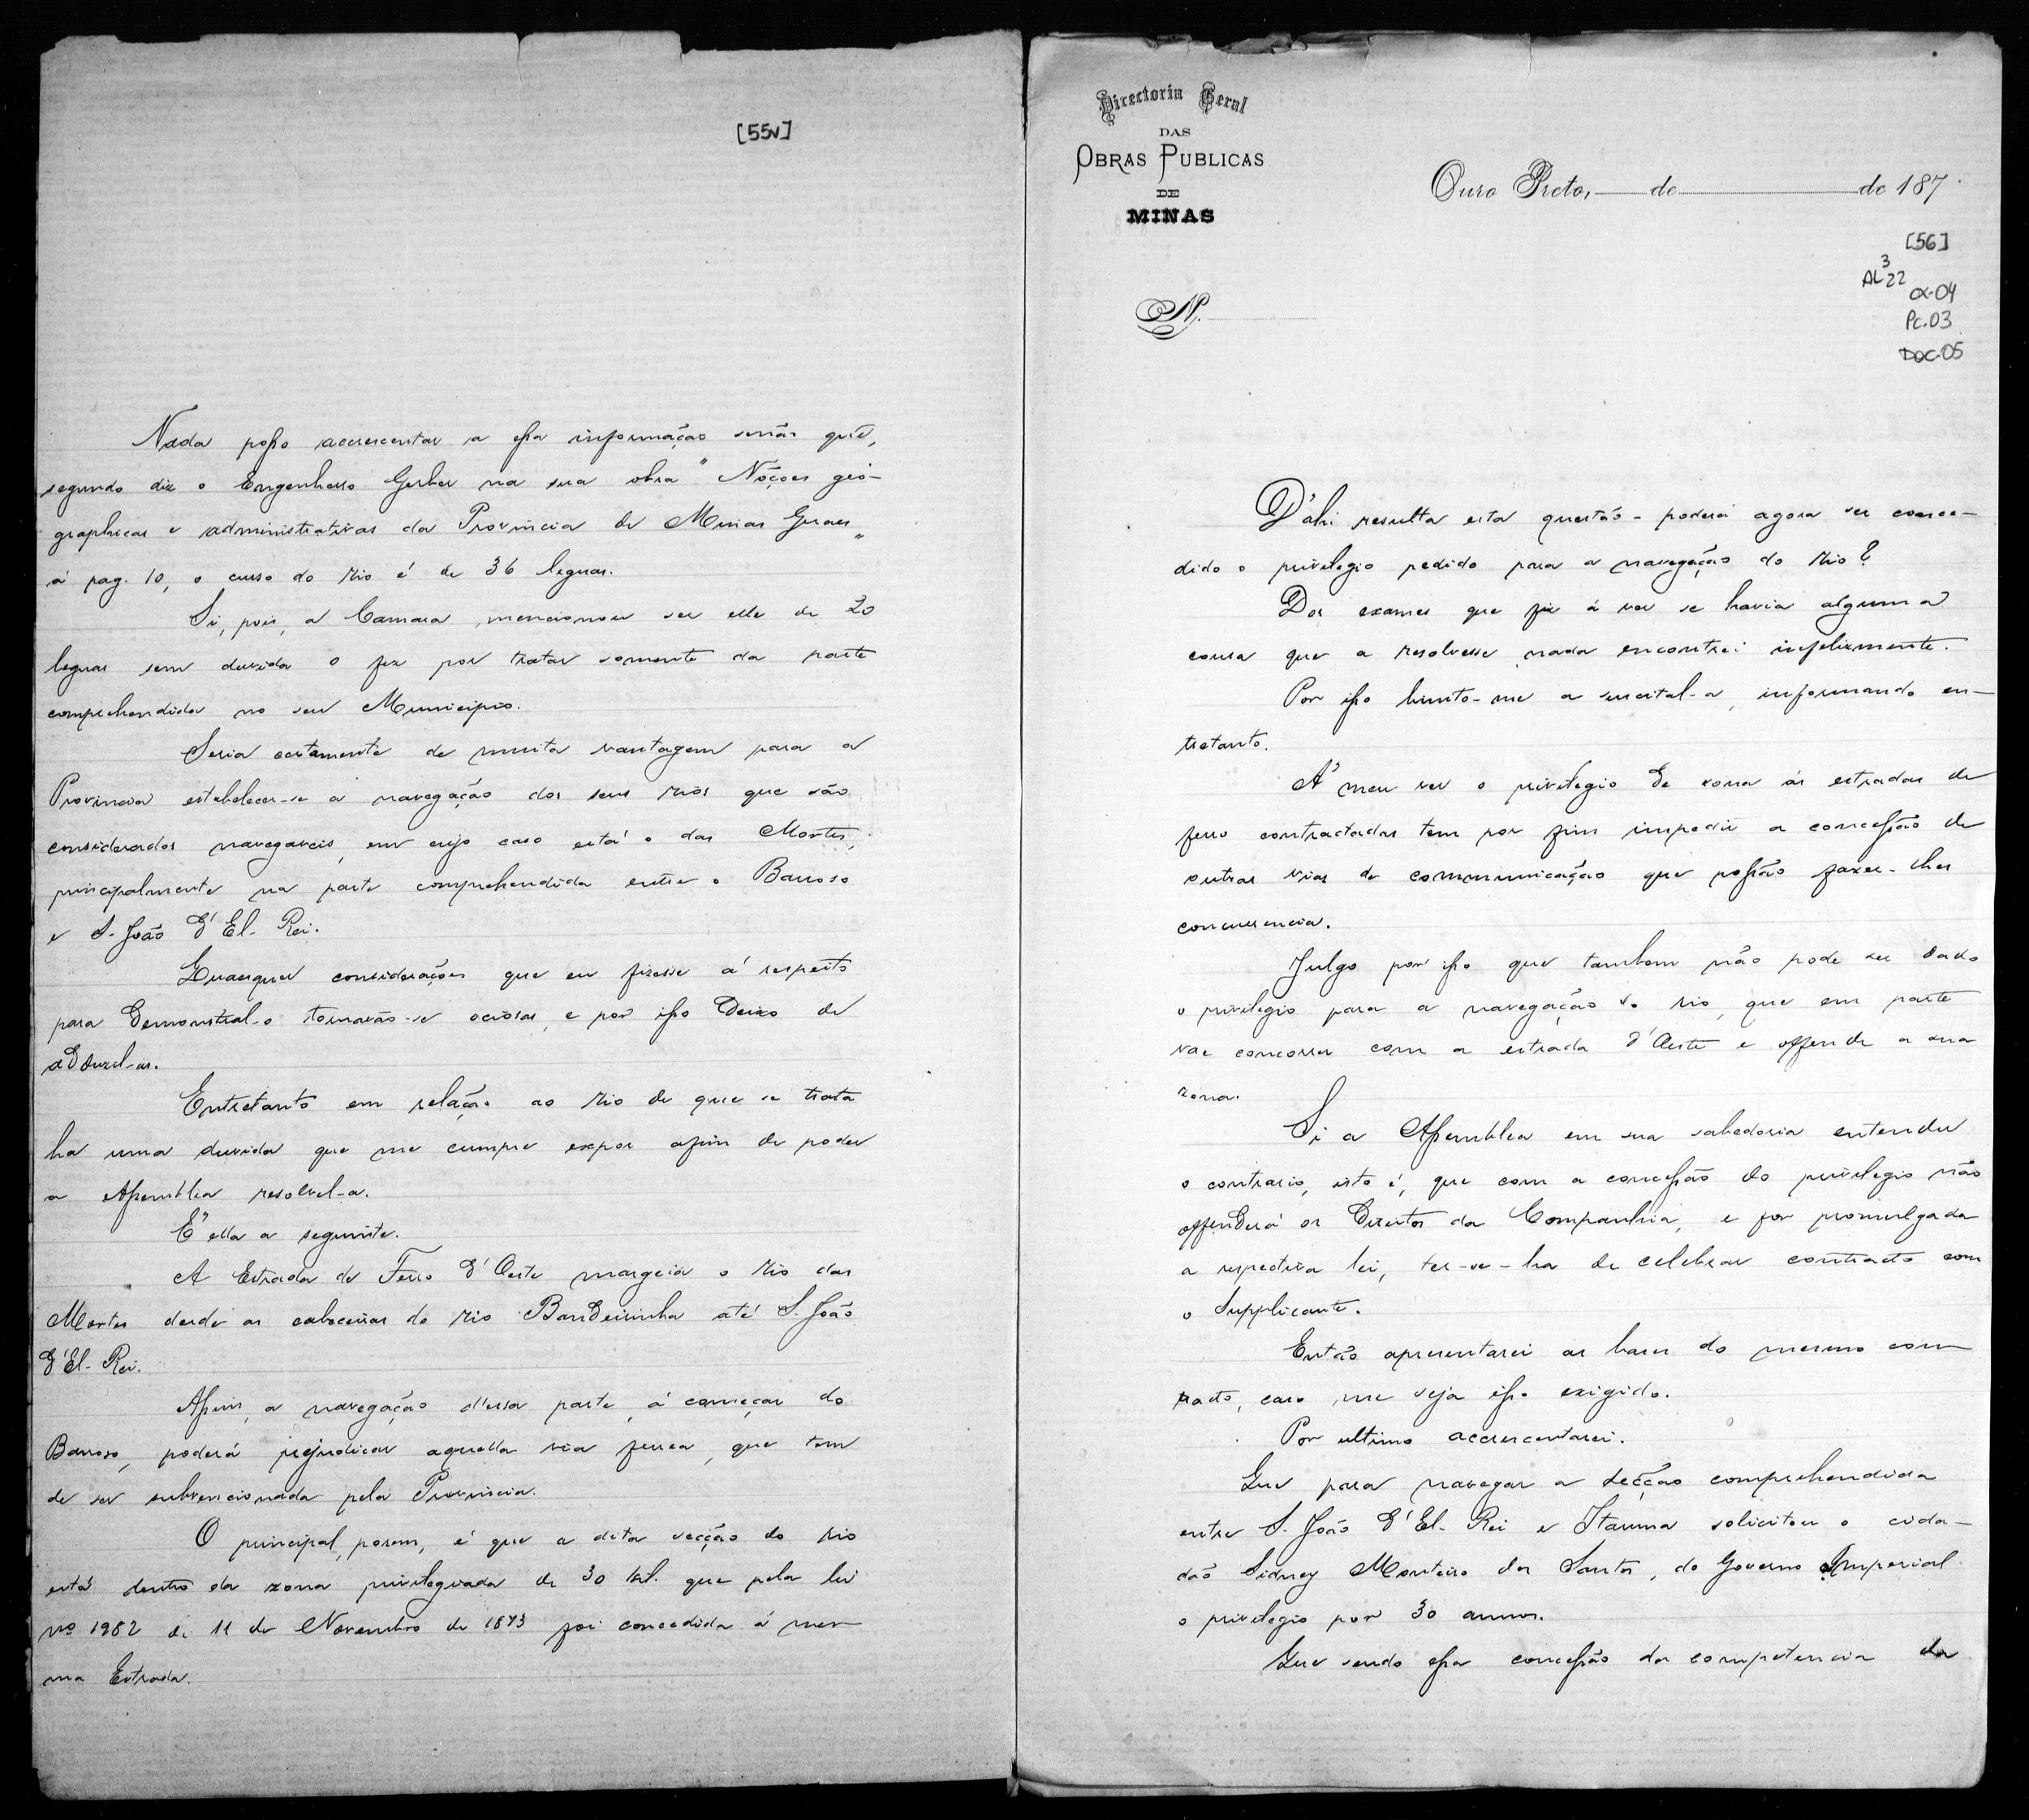 [55v]
Nada posso accrescentar a essa informação senão que,
segundo diz o Engenheiro Gerber na sua obra "Noções geo-
graphicas e administrativas da Provincia de Minas Geraes"
á pag. 10, o curso do Rio é de 36 leguas.
Si, pois, a Camara mencionou ser elle de 20
leguas sem duvida o fez por tratar somente da parte
comprehendida no seu Municipio.
Seria certamente de muita vantagem para a
Provincia estabelecer-se a navegação dos seus rios que são
considerados navegaveis, em cujo caso está o das Mortes,
principalmente na parte comprehendida entre o Barroso
e S. João d'El-Rei.
Quaesquer considerações que eu fizesse á respeito
para demonstral-o tornarão-se ociosas, e por isso deixo de
adduzil-as.
Entretanto em relação ao Rio de que se trata
ha uma duvida que me cumpre expor afim de poder
a Assemblea resolvel-a.
E' ella a seguinte.
A Estrada de Ferro d'Oeste margeia o Rio das
Mortes desde as cabeceiras do Rio Bandeirinha até S. João
d'El-Rei.
Assim, a navegação d'essa parte, á começar do
Barroso, poderá prejudicar aquella via ferrea, que tem
de ser subvencionada pela Provincia.
O principal, porem, é que a dita secção do rio
está dentro da zona privilegiada de 30 kil. que pela lei
nº 1982 de 11 de Novembro de 1873 foi concedida á mes-
ma Estrada.
Directoria Geral
DAS
OBRAS PUBLICAS
DE
MINAS
Ouro Preto, de de 187
[56]
AL3 22
cx-04
Pc.03
DOC-05
N.
D'ahi resulta esta questão - poderá agora ser conce-
dido o privilegio pedido para a navegação do Rio?
Dos exames que fiz á ver se havia alguma
cousa que a resolvesse nada encontrei infelizmente.
Por isso limito-me a suscital-a, informando en-
tretanto.
A' meu ver o privilegio de zona ás estradas de
ferro contractadas tem por fim impedir a concessão de
outras vias de communicação que possão fazer-lhes
concurrencia.
Julgo por isso que tambem não pode ser dado
o privilegio para a navegação do rio, que em parte
vae concorrer com a estrada d'Oeste e offende a sua
zona.
Si a Assemblea em sua sabedoria entender
o contrario, isto é, que com a concessão do privilegio não
offenderá os direitos da Companhia, e for promulgada
a respectiva lei, ter-se-ha de celebrar contracto com
o Supplicante.
Então apresentarei as bases do mesmo con-
tracto, caso me seja isso exigido.
Por ultimo accrescentarei.
Que para navegar a secção comprehendida
entre S. João d'El-Rei e Itauma solicitou o cida-
dão Sidney Monteiro dos Santos, do Governo Imperial
o privilegio por 30 annos.
Que sendo essa concessão da competencia do